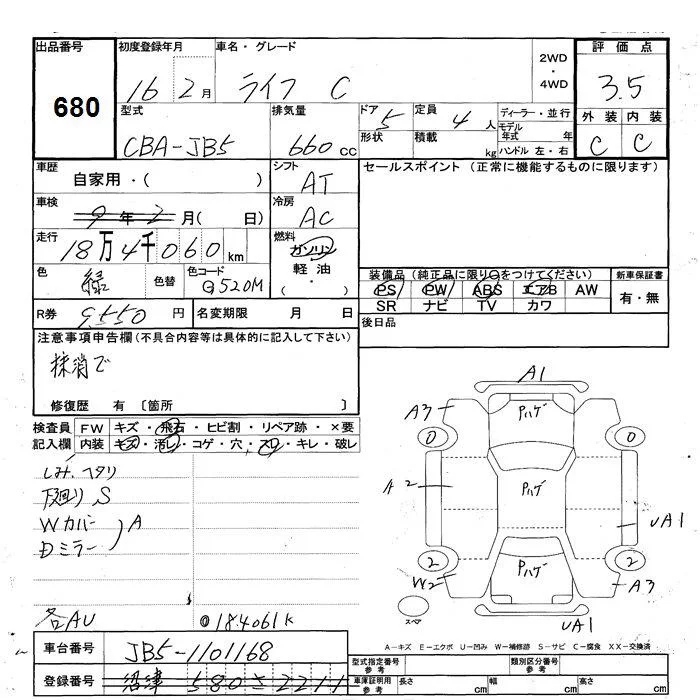 出品番号 初度登録年月 車名・グレード 2WD・4WD 評価点
680 16 2月 ライフ C 3.5
型式 排気量 ドア 5 定員 4人 ディーラー・並行 外装 内装
CBA-JB5 660cc 形状 積載 kg モデル年式 年 ハンドル 左・右 C C
車歴 シフト セールスポイント (正常に機能するものに限ります)
自家用・( ) AT
車検 冷房
9年2月( 日) AC
走行 燃料
18万4千060km ガソリン
色 色替 色コード 軽油 装備品 (純正品に限り○をつけてください) 新車保証書
緑 G520M ( ・ ) PS PW ABS エアB AW 有・無
SR ナビ TV カワ
R券 9,550円 名変期限 月 日 後日品
注意事項申告欄(不具合内容等は具体的に記入して下さい)
抹消で
修復歴 有 〔箇所 〕
検査員 FW キズ・飛石・ヒビ割・リペア跡・×要
記入欄 内装 キズ・汚レ・コゲ・穴・スレ・キレ・破レ
しみ、ヘタリ
下廻りS
Wカバー
Dミラー
A
各AU 184061K
A1
A3 Pハゲ
0 0
A2 Pハゲ UA1
2 2
W2 Pハゲ A3
スペア UA1
A-キズ E-エクボ U-凹み W-補修跡 S-サビ C-腐食 XX-交換済
車台番号 JB5-1101168
登録番号 沼津 580 さ 2211
型式指定番号 参考 類別区分番号 参考
車庫証明用 参考 長さ cm 幅 cm 高さ cm